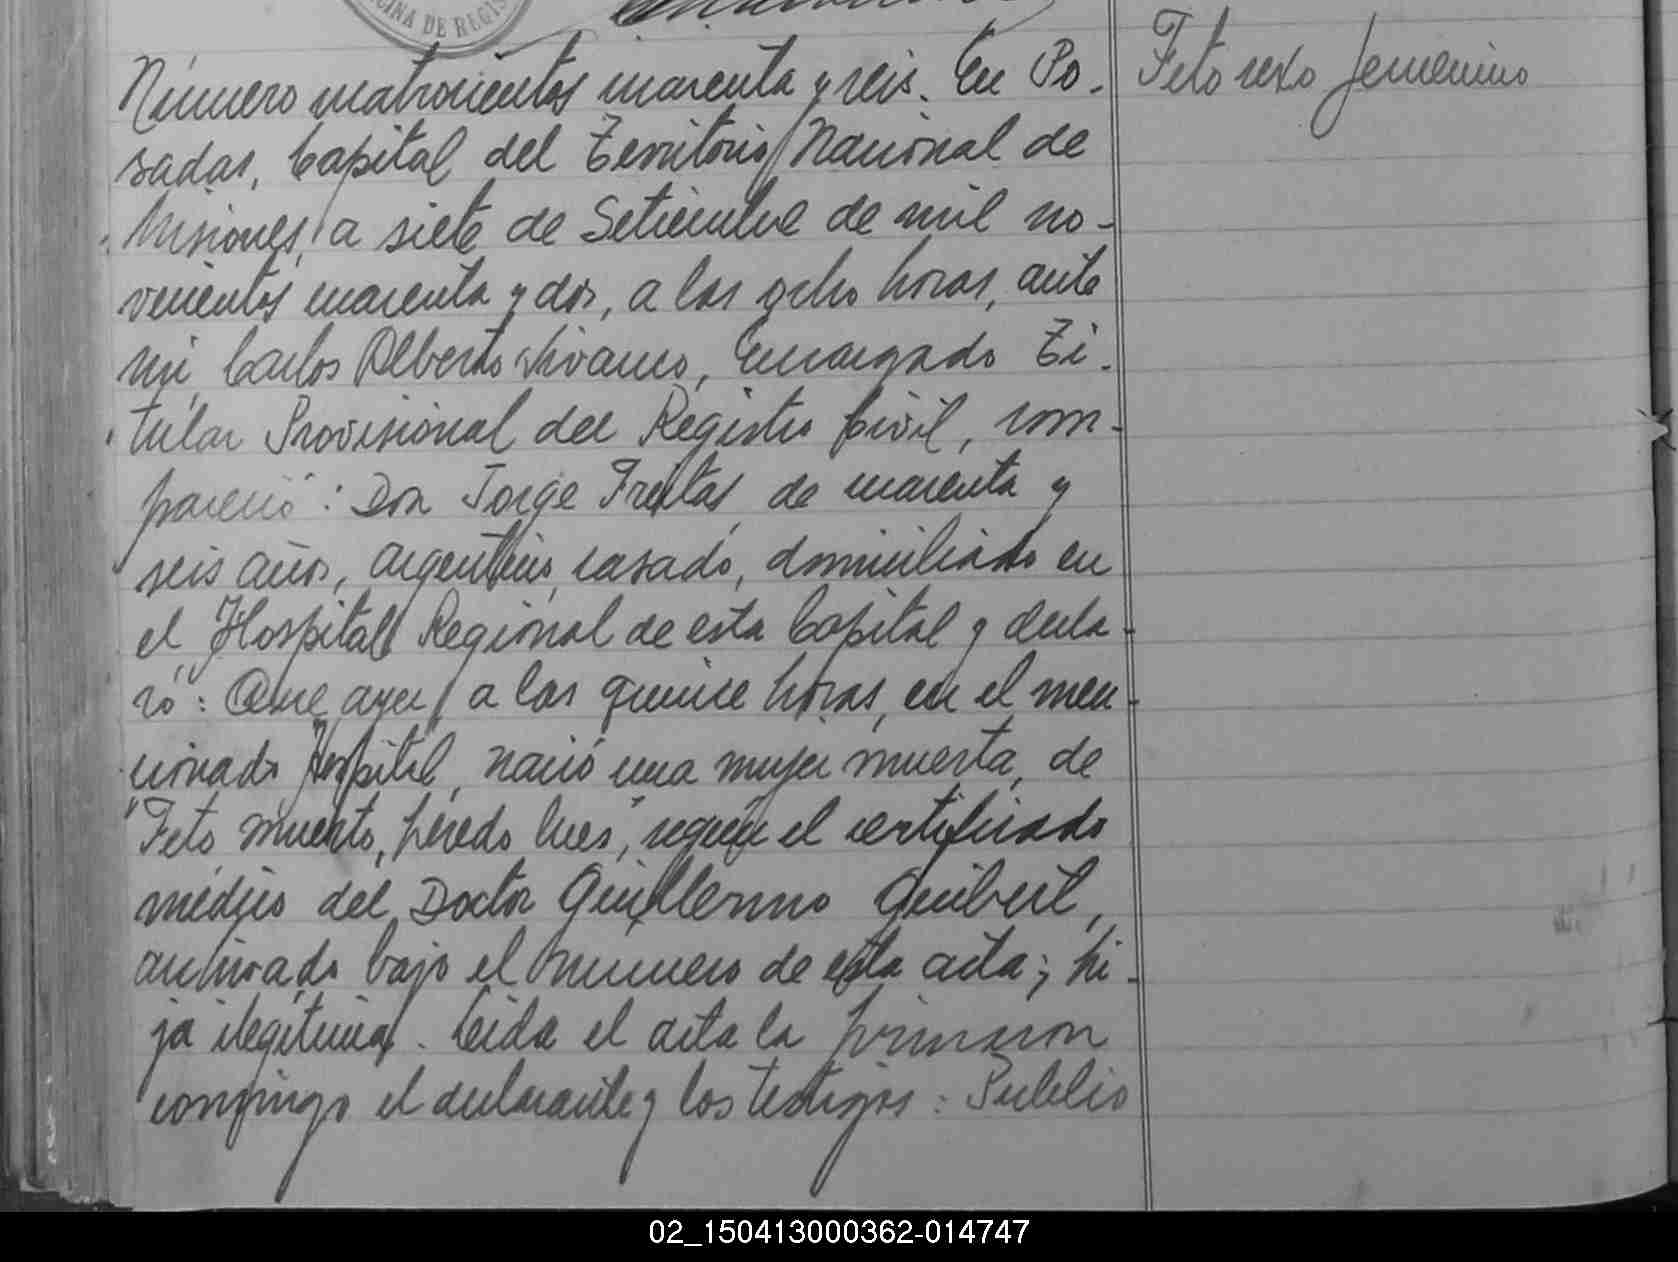 CINA DE REGIS
Número cuatrocientos cuarenta y seis. En Po-
sadas, Capital del Territorio Nacional de
Misiones, a siete de Setiembre de mil no-
vecientos cuarenta y dos, a las ocho horas, ante
mi, Carlos Alberto Vivanco, Encargado Ti-
tular Provisional del Registro Civil, com-
pareció: Don Jorge Freitas, de cuarenta y
seis años, argentino, casado, domiciliado en
el Hospital Regional de esta Capital y decla-
ró: Que ayer, a las quince horas, en el men-
cionado Hospital, nació una mujer muerta, de
"Feto muerto, heredo lues", según el certificado
médico del Doctor Guillermo Guibert,
archivado bajo el número de esta acta; hi-
ja ilegitima. Leida el acta la firmaron
conmigo el declarante y los testigos: Publio
Feto sexo femenino
02_150413000362-014747